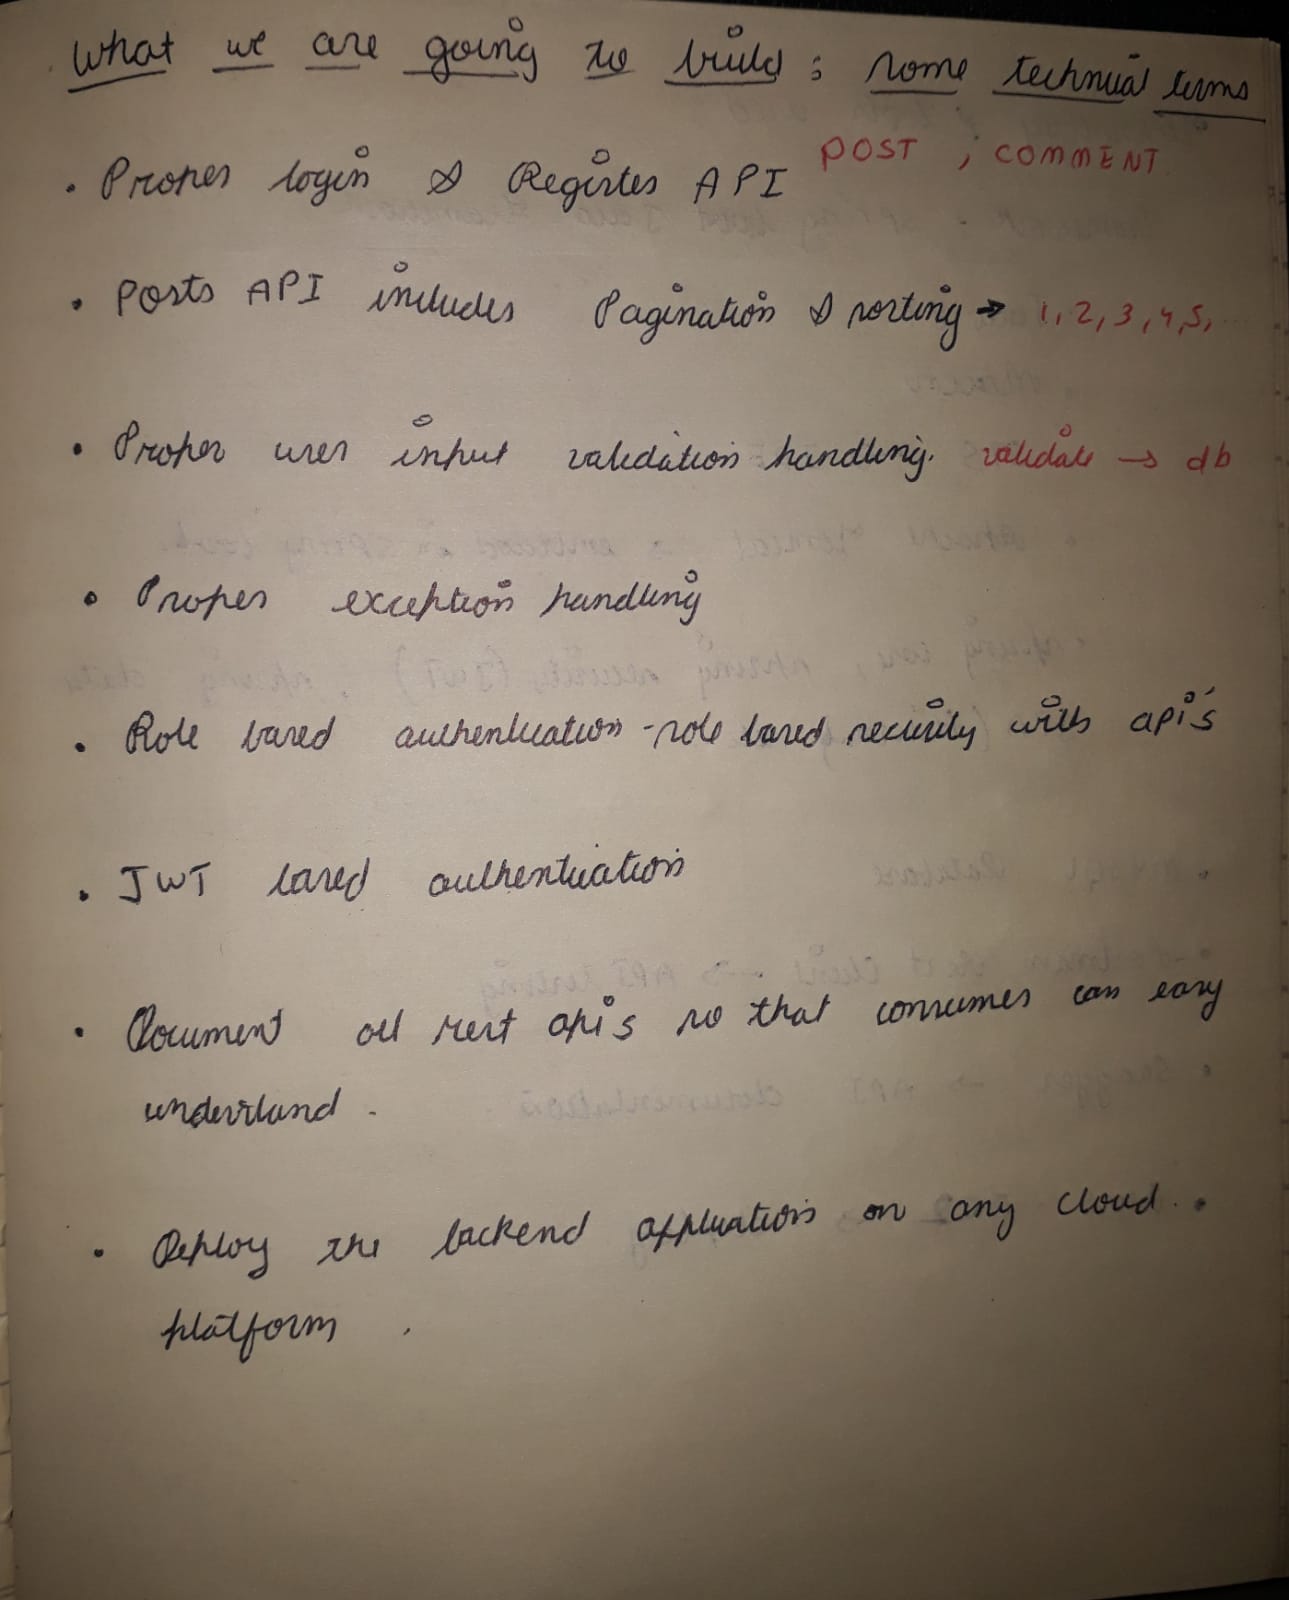 What we are going to build : some technical terms
• Proper login & Register API POST , COMMENT
• Posts API includes Pagination & sorting → 1, 2, 3, 4, 5,
• Proper user input validation handling. validate → db
• Proper exception handling
• Role based authentication - role based security with api's
• JWT based authentication
• Document all rest api's so that consumes can easy
understand .
• Deploy the backend application on any cloud .
platform .